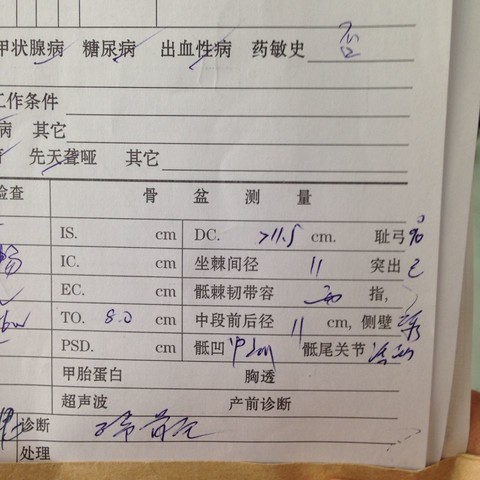 甲状腺病 糖尿病 出血性病 药敏史 否
工作条件
病 其它
先天聋哑 其它
检查 骨盆测量
IS. cm DC. >11.5 cm. 耻弓 90°
IC. cm 坐棘间径 11 突出
EC. cm 骶棘韧带容 指,
TO. 8.0 cm 中段前后径 11 cm, 侧壁
PSD. cm 骶凹 骶尾关节
甲胎蛋白 胸透
超声波 产前诊断
诊断
处理